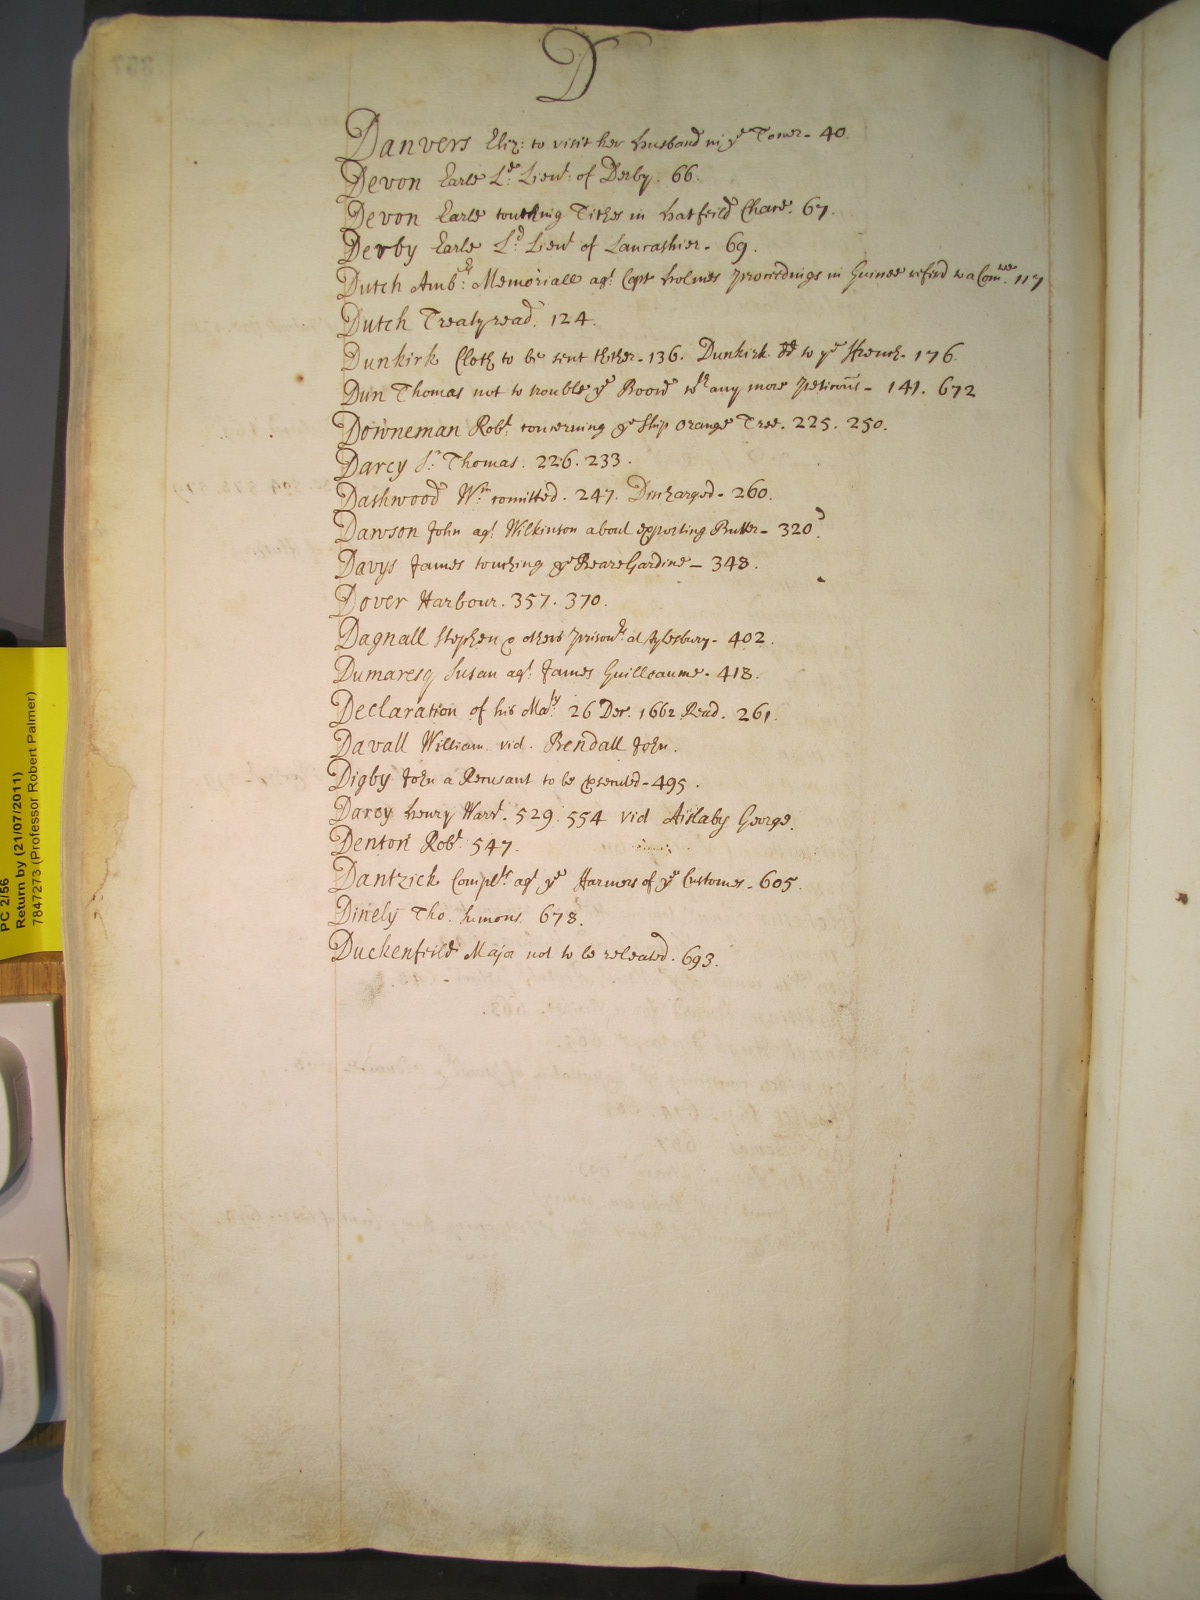 D
Danvers Eliz: to visit her husband in ye Tower - 40.
Devon Earle Ld. Lieut. of Derby. 66.
Devon Earle touching Tithes in hatfeild Chace. 67.
Derby Earle Ld. Lieut of Lancashier - 69.
Dutch Ambrs. Memoriall agt. Capt holmes proceedings in Guinee referd to a Comtee. 117
Dutch Treaty read. 124.
Dunkirk Cloth to be sent thither - 136. Dunkirk dd to ye ffrench - 176.
Dun Thomas not to trouble ye Board wth any more peticons - 141. 672
Downeman Robt. concerning ye ship Orange Tree. 225. 250.
Darcy Sr. Thomas. 226. 233.
Dashwood Wm. comitted. 247. Discharged - 260.
Dawson John agt Wilkinson about exporting Butter - 320.
Davys James touching ye Beare Gardine - 348.
Dover Harbour. 357. 370.
Dagnall Stephen & others prisonrs. at Aylesbury - 402.
Dumaresq Susan agt. James Guilleaume - 418.
Declaration of his Maty. 26 Der. 1662 Read. 261.
Davall William. vid. Bendall John.
Digby John a Recusant to be executed - 495.
Darcy henry Warrt. 529. 554 vid Aislaby George.
Denton Robt. 547.
Dantzick Complts. agt ye ffarmers of ye Customes - 605.
Dinely Tho. sumons. 678.
Duckenfeild Major not to be released. 693.
PC 2/56
Return by (21/07/2011)
7847273 (Professor Robert Palmer)